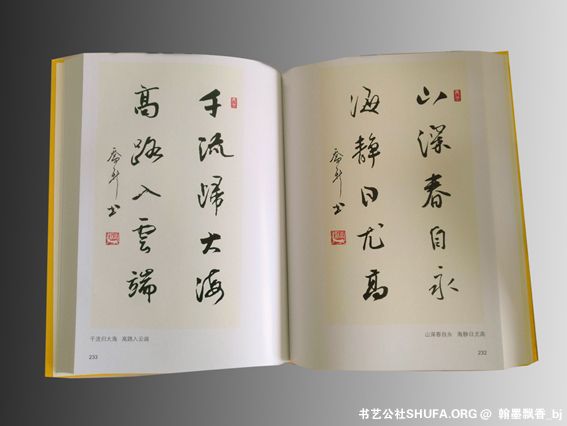 山深春自永
海静日尤高
山深春自永 海静日尤高
232
千流歸大海
高路入雲端
千流归大海 高路入云端
233
书艺公社SHUFA.ORG @ 翰墨飘香_bj